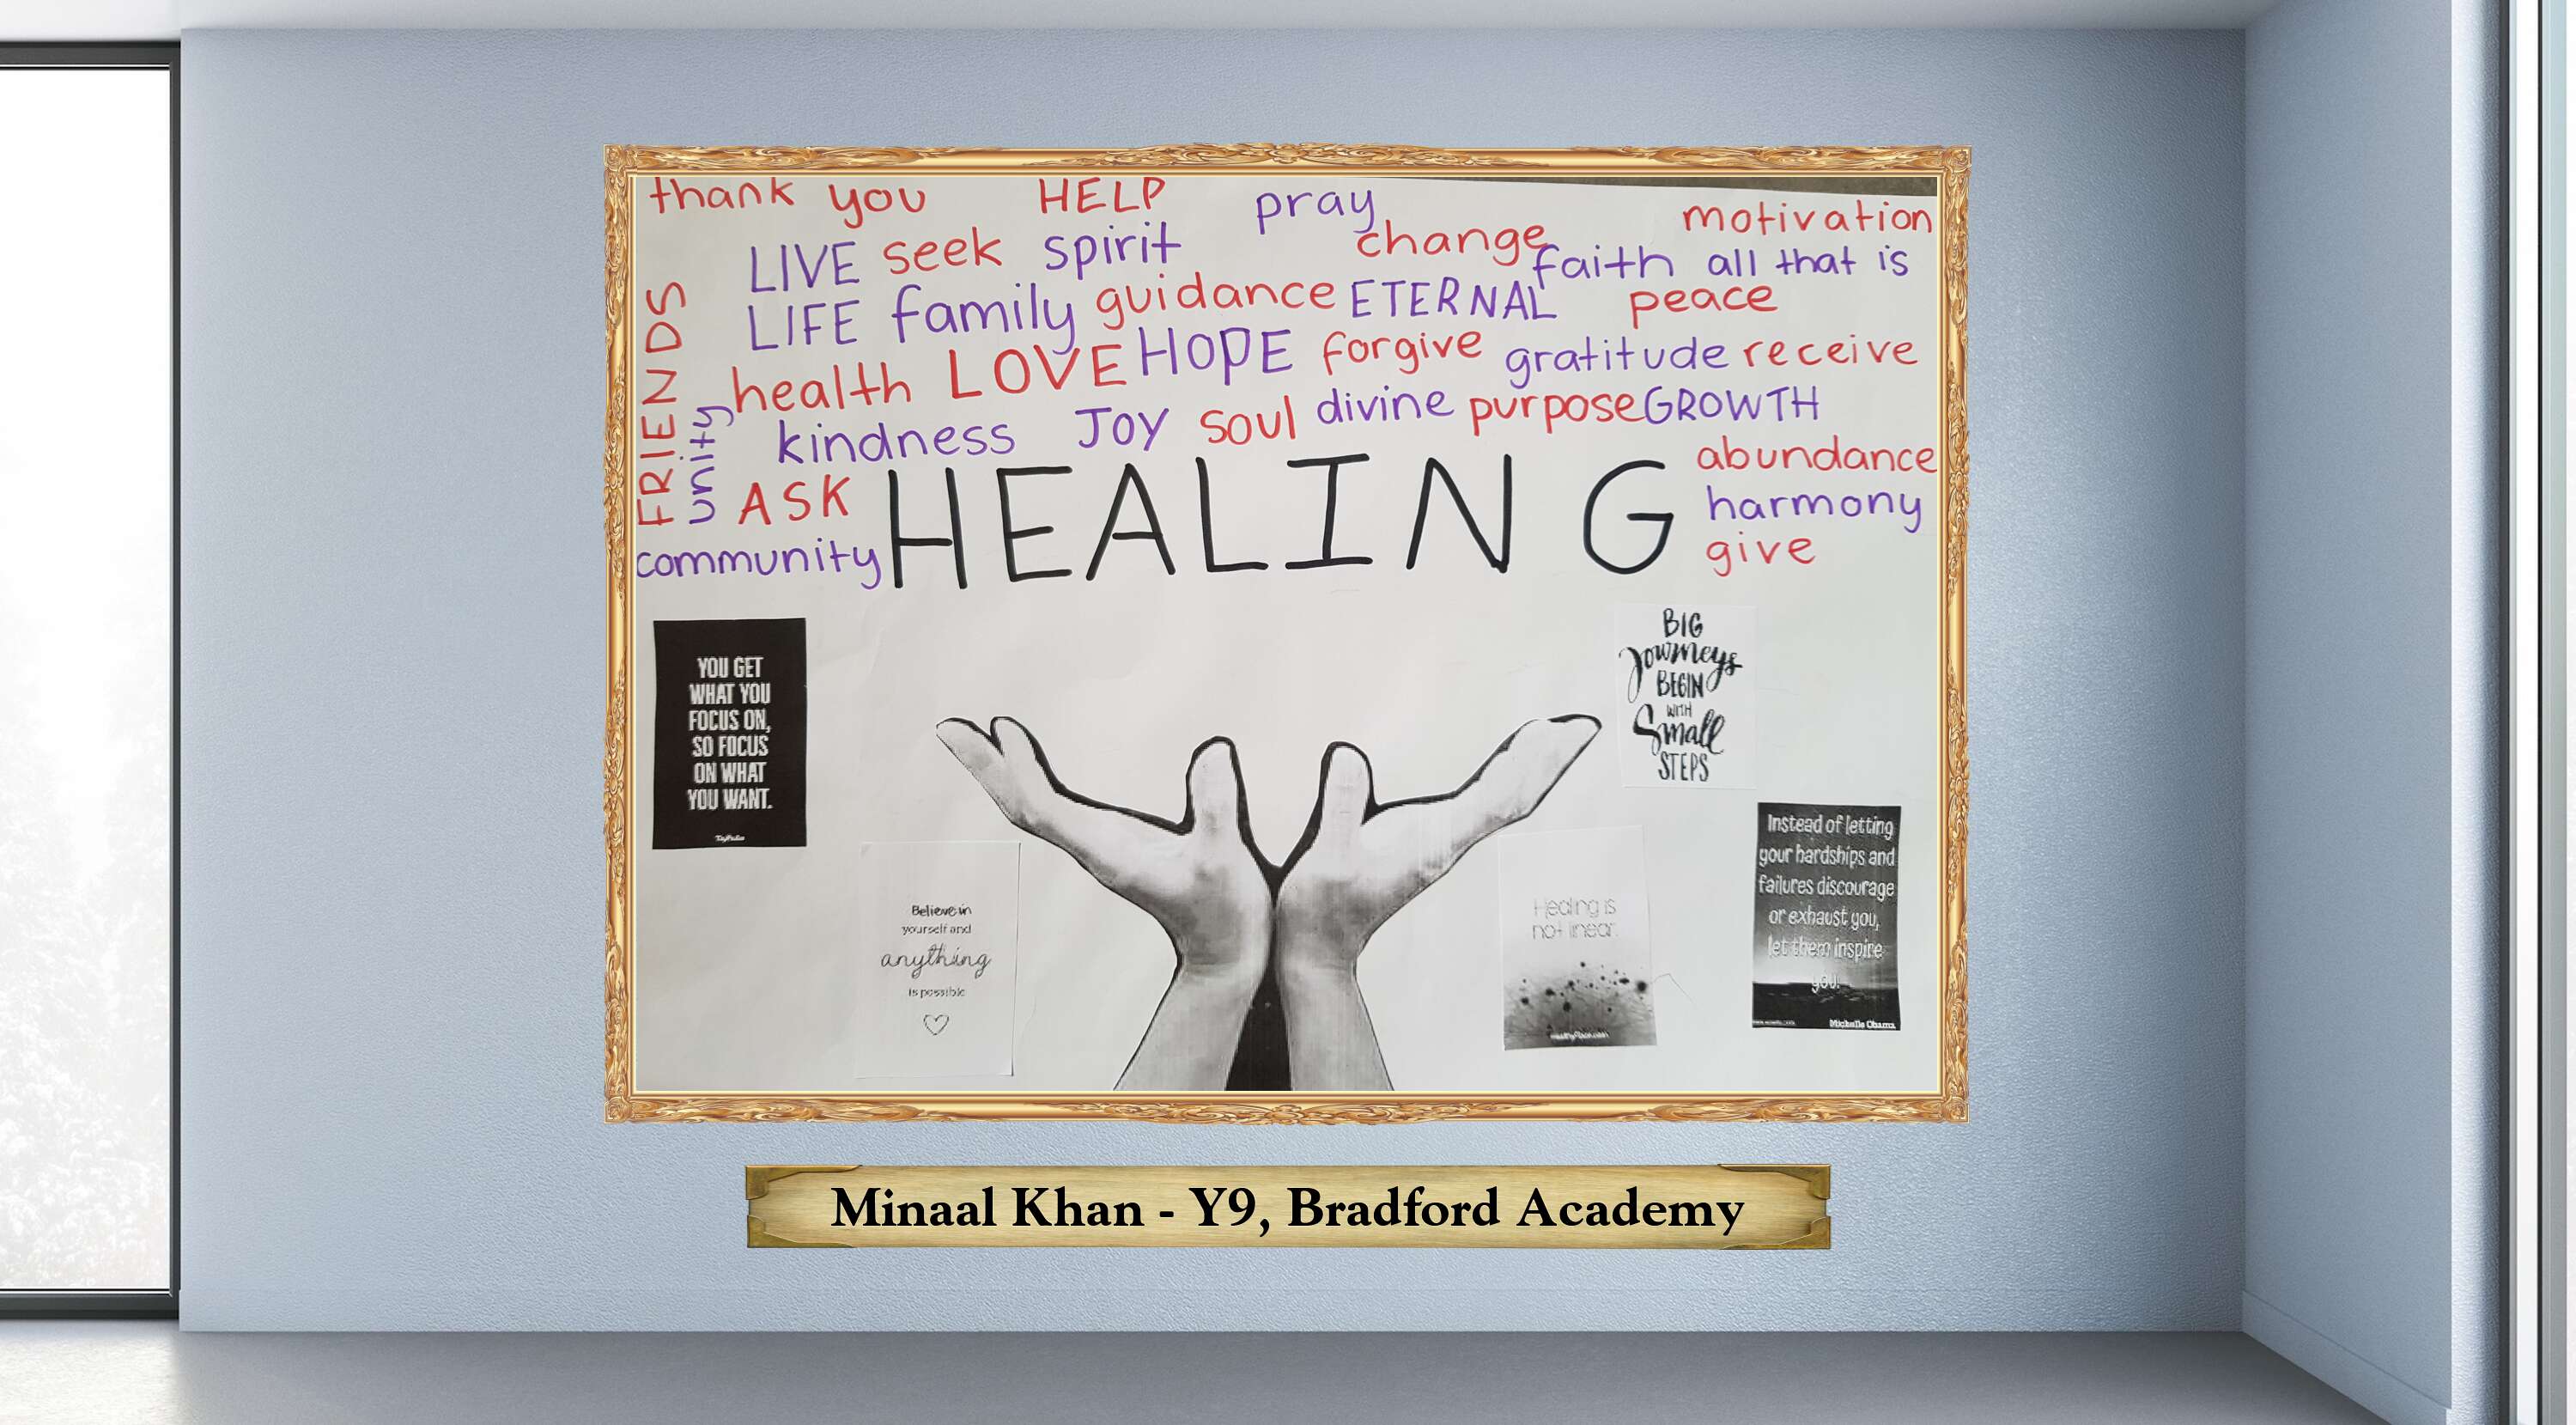 thank you HELP pray motivation
LIVE seek spirit change faith all that is
LIFE family guidance ETERNAL peace
FRIENDS
unity
health LOVE HOPE forgive gratitude receive
kindness Joy soul divine purpose GROWTH
ASK HEALING abundance
harmony
community give
YOU GET
WHAT YOU
FOCUS ON,
SO FOCUS
ON WHAT
YOU WANT.
BIG
Journeys
BEGIN
WITH
Small
STEPS
Believe in
yourself and
anything
is possible
Healing is
not linear.
Instead of letting
your hardships and
failures discourage
or exhaust you,
let them inspire
you.
Michelle Obama
Minaal Khan - Y9, Bradford Academy